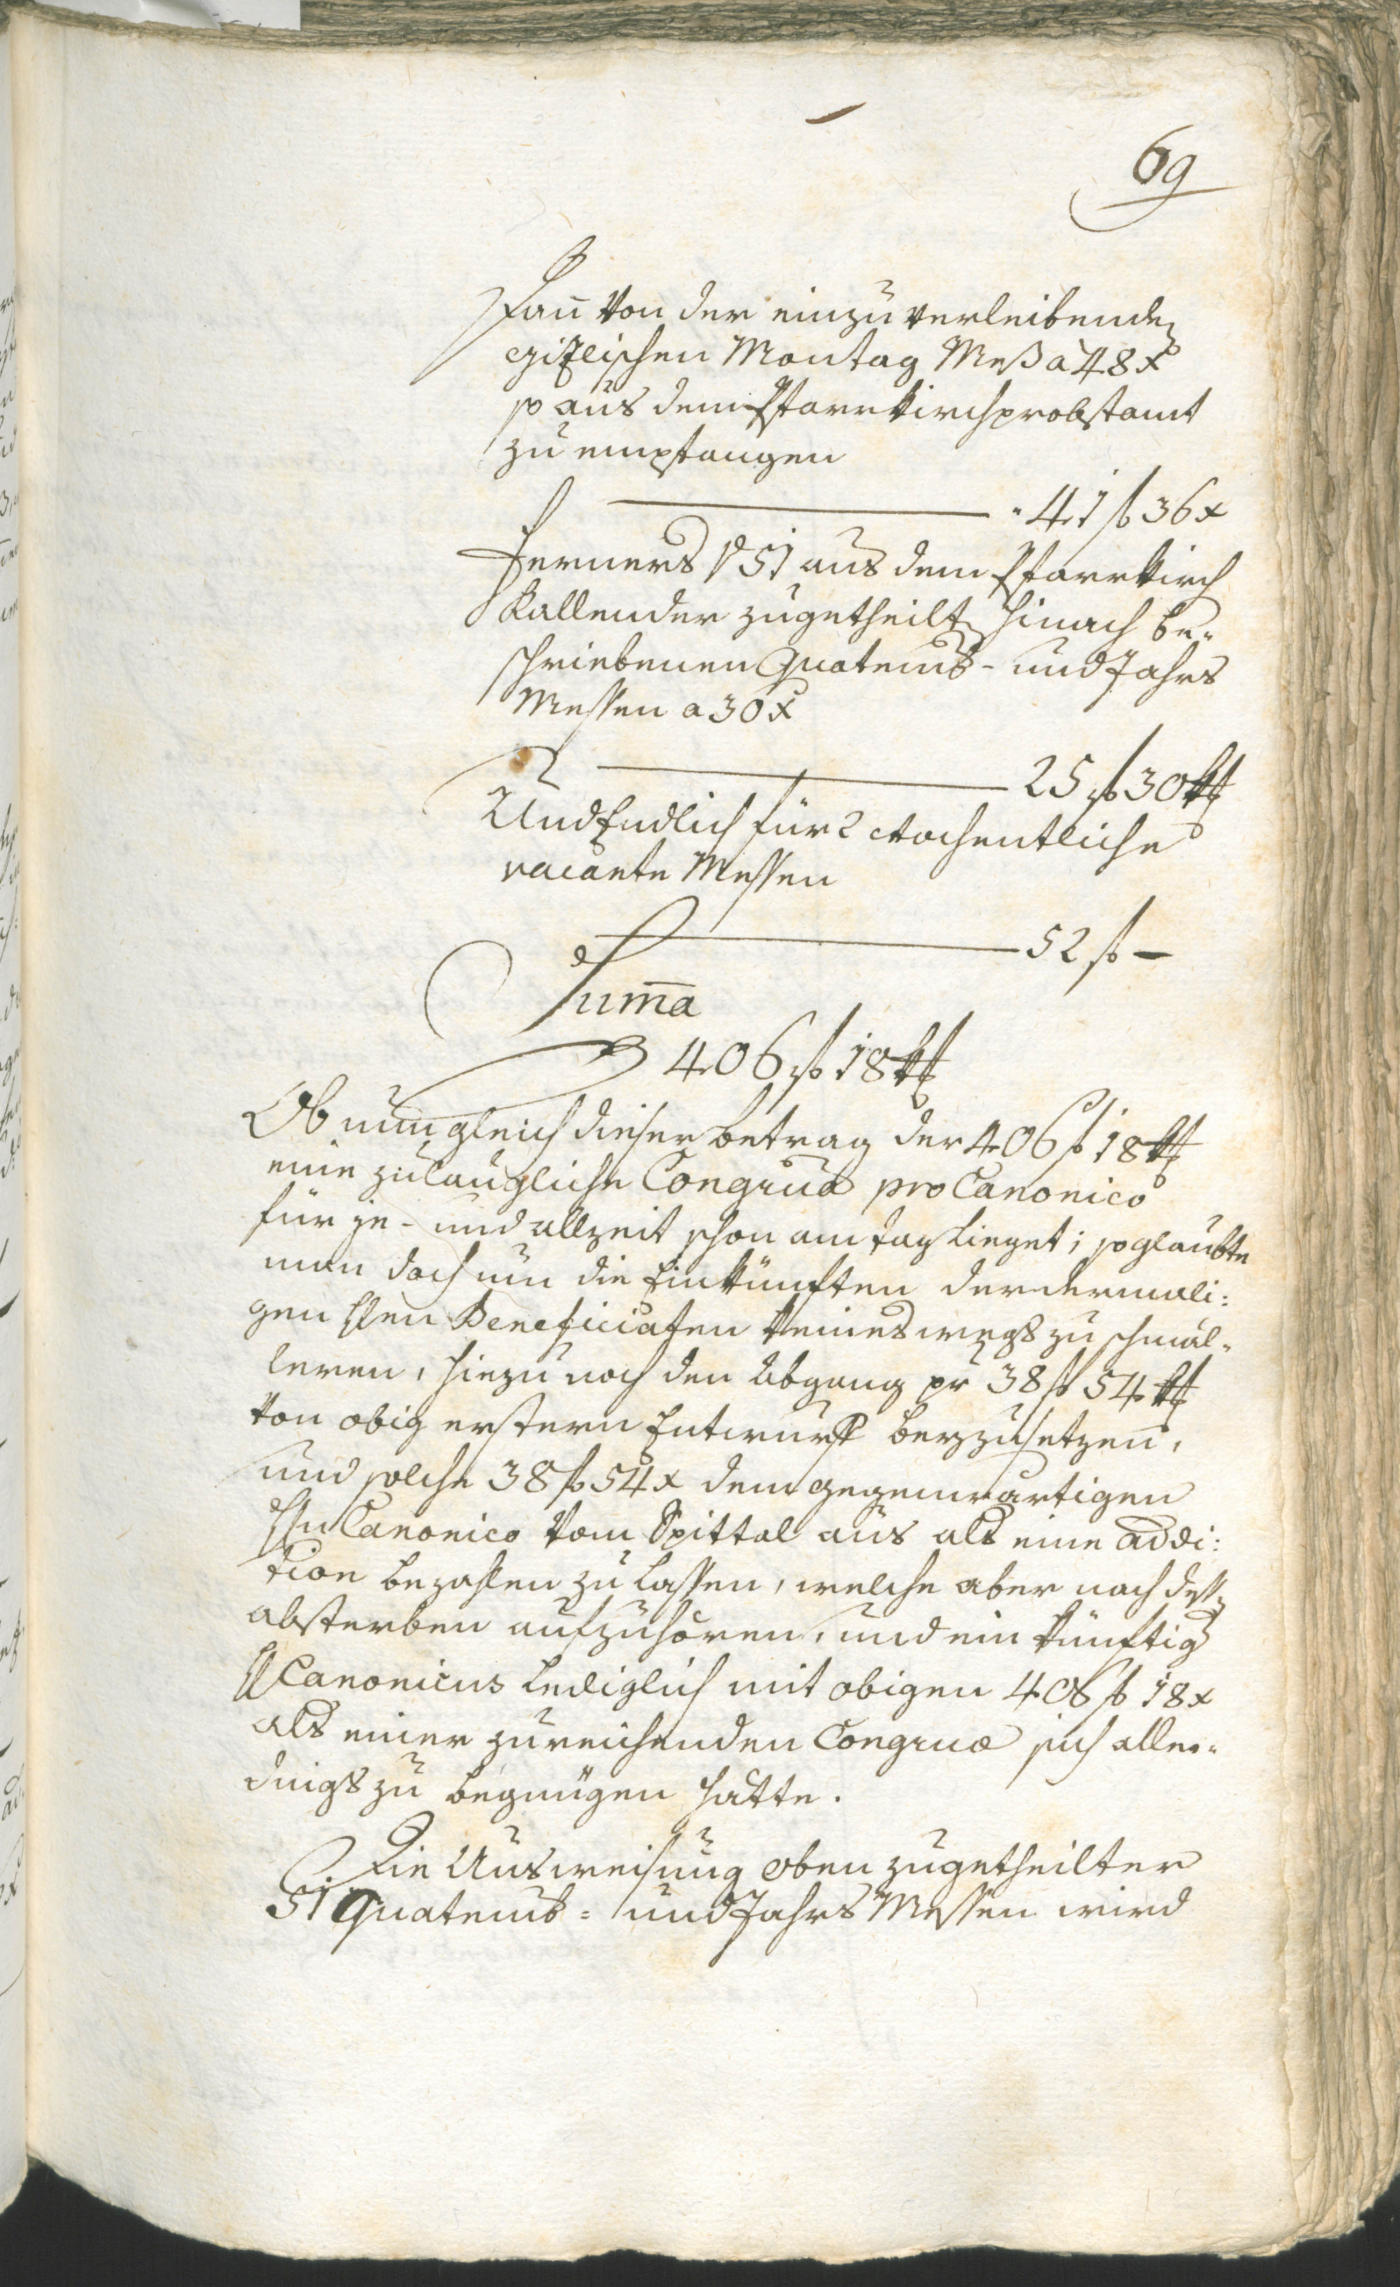 69
Dan̄ von der einzuverleibenden
Gizlischen Montag Meß a 48 x
so aus dem Pfarrkirchprobstamt
zu empfangen
41 f 36 x
Ferners 51 aus dem Pfarrkirch
Kallender zugetheilt hinach be-
schriebenen Quatemb- und Jahrs
Messen a 30 x
25 f 30 kr
Und Endlich für 2 wochentliche
vacante Messen
52 f —
Sum̄a
406 f 18 kr
Ob nun gleich dieser betrag der 406 f 18 kr
eine zulängliche Congrua pro Canonico
für je- und allzeit schon am tag lieget; so glaubte
man doch um die Einkünften der dermali:
gen Hen Beneficiaten keineswegs zu schmäl-
leren, hiezu noch den Abgang pr 38 f 54 kr
von obig erstern Entwurff beyzusetzen,
und solche 38 f 54 x dem gegenwärtigen
Hn Canonico vom Spittal aus als eine addi:
tion bezahlen zu lassen, welche aber nach dess
absterben aufzuhören, und ein künftig
H Canonicus lediglich mit obigen 406 f 18 x
als einer zureichenden Congrua sich aller-
dings zu begnügen hätte.
Die Ausweisung oben zugetheilter
51 Quatemb: und Jahrs Messen wird